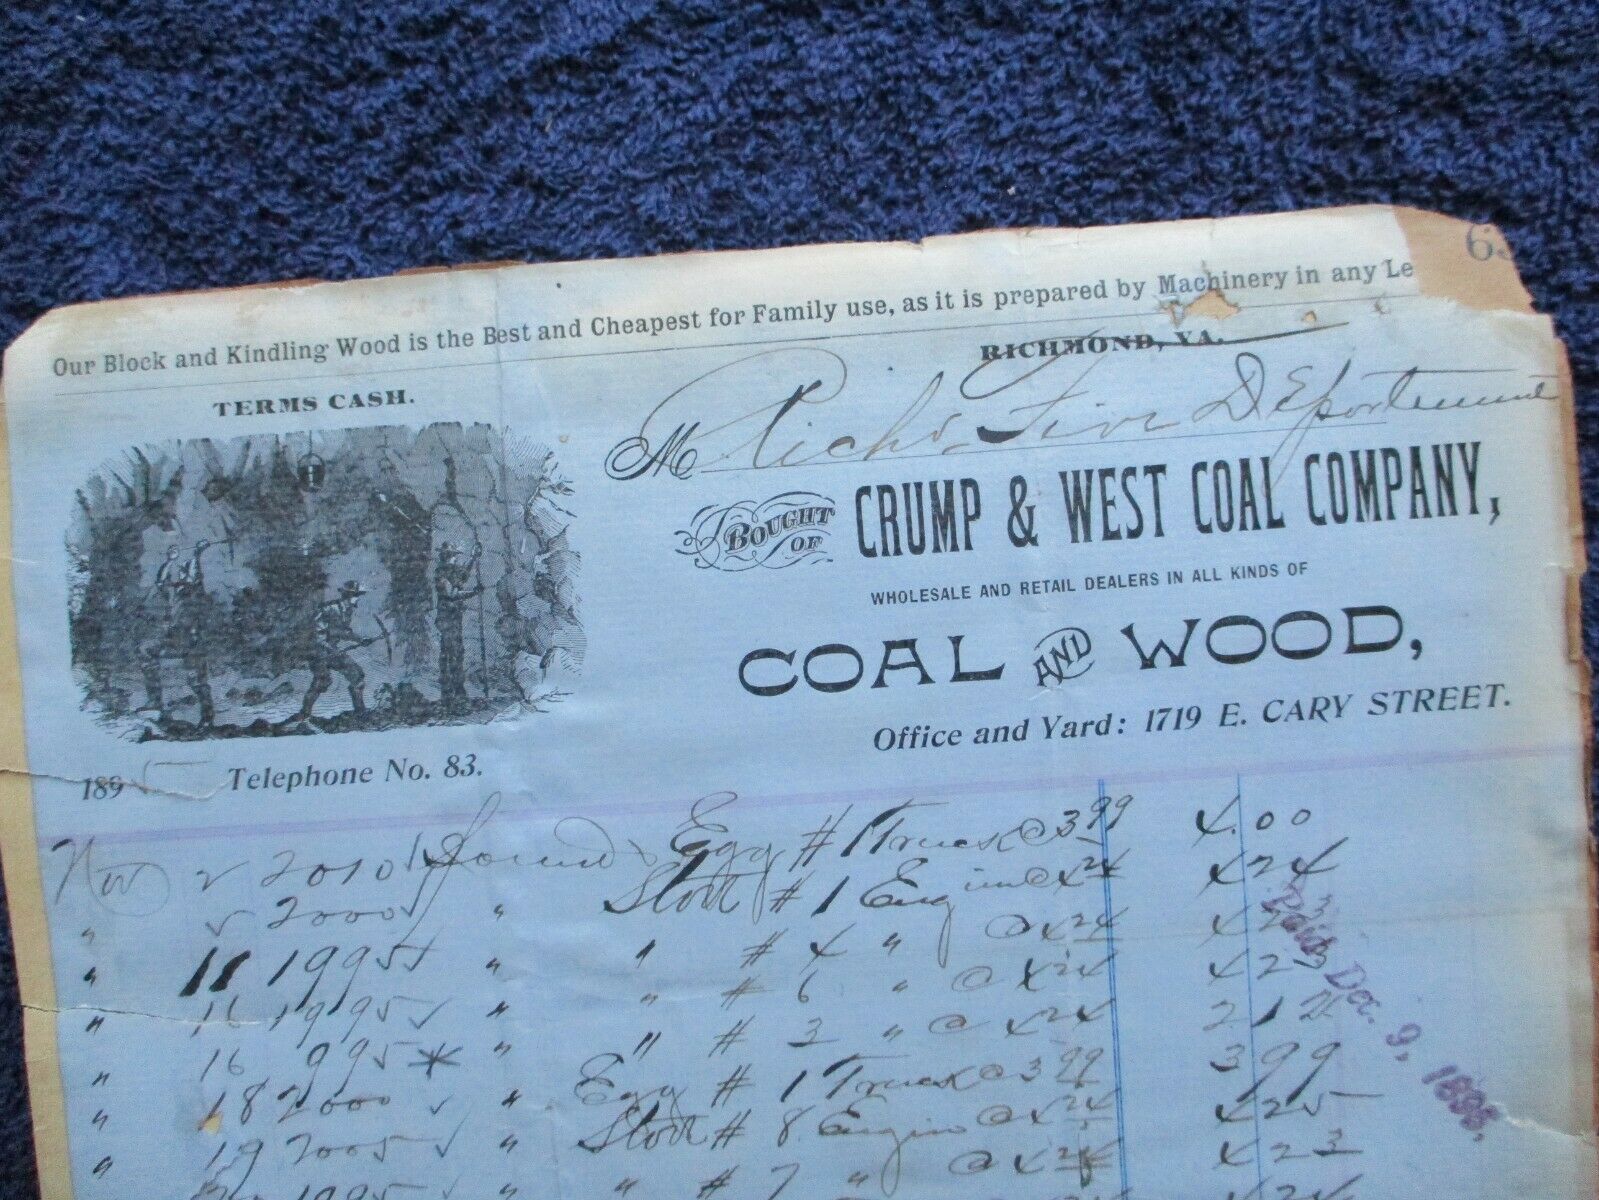 Our Block and Kindling Wood is the Best and Cheapest for Family use, as it is prepared by Machinery in any Le
63
RICHMOND, VA.
TERMS CASH.
M Richd Fire Department
BOUGHT OF CRUMP & WEST COAL COMPANY,
WHOLESALE AND RETAIL DEALERS IN ALL KINDS OF
COAL AND WOOD,
Office and Yard: 1719 E. CARY STREET.
1895 Telephone No. 83.
Nov 2 2010 Pounds Egg # 1 Truck @ 3 99 4.00
" 2000 " Stove # 1 Engine @ 4 24 4 24
" 11 1995 " " # 4 " @ 4 24 4 23
" 16 1995 " " # 6 " @ 4 24 4 23
" 16 995 * " " # 3 " @ 4 24 2 12
" 18 2000 " Egg # 1 Truck @ 3 99 3 99
" 19 2005 " Stove # 8 Engine @ 4 24 4 25
" 1995 " " # 7 " @ 4 24 4 23
Paid, Dec. 9, 1895.